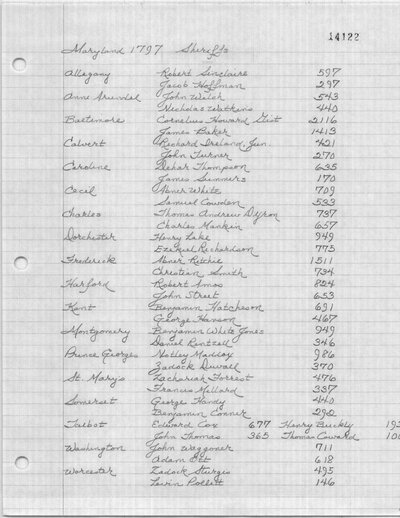 14122
Maryland 1797 Sheriffs
Allegany Robert Sinclaire 597
Jacob Hoffman 297
Anne Arundel John Welch 543
Nicholas Watkins 440
Baltimore Cornelius Howard Gist 2116
James Baker 1413
Calvert Richard Ireland Jun. 421
John Turner 270
Caroline Thompson 635
James Summers 170
Cecil Abner White 709
Samuel Cowden 533
Charles Thomas Andrew Dyson 737
Charles Mankin 657
Dorchester Henry Lake 949
Ezekiel Richardson 775
Frederick Abner Ritchie 1511
Christian Smith 734
Harford Robert Amos 824
John Street 653
Kent Benjamin Hatcheson 691
George Hanson 467
Montgomery Benjamin White Jones 949
Daniel Rintzell 346
Prince Georges Notley Maddox 986
Zadock Duvall 370
St. Mary's Zachariah Forrest 476
Francis Millard 337
Somerset George Handy 440
Benjamin Conner 292
Talbot Edward Cox 677 Henry Buckly
John Thomas 365 Thomas Coward
Washington John Waggoner 711
Adam Ott 618
Worcester Zadock Sturgis 495
Levin Pollett 146